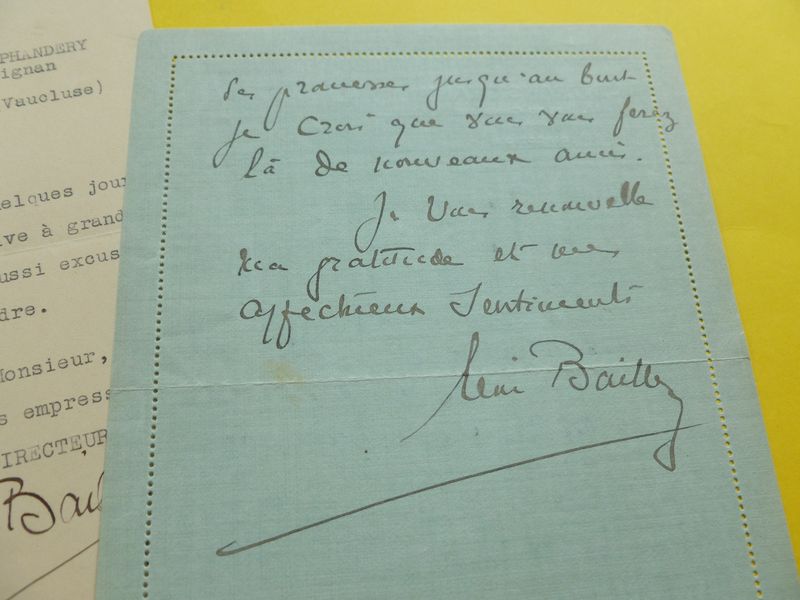 PHANDERY
ignan
Vaucluse)
elques jour
ive à grand
ussi excus
dre.
Monsieur,
s empress
IRECTEUR
Bai
les promesses jusqu'au bout
je crois que vous vous ferez
là de nouveaux amis.
Je vous renouvelle
ma gratitude et mes
affectueux sentiments
Bailly